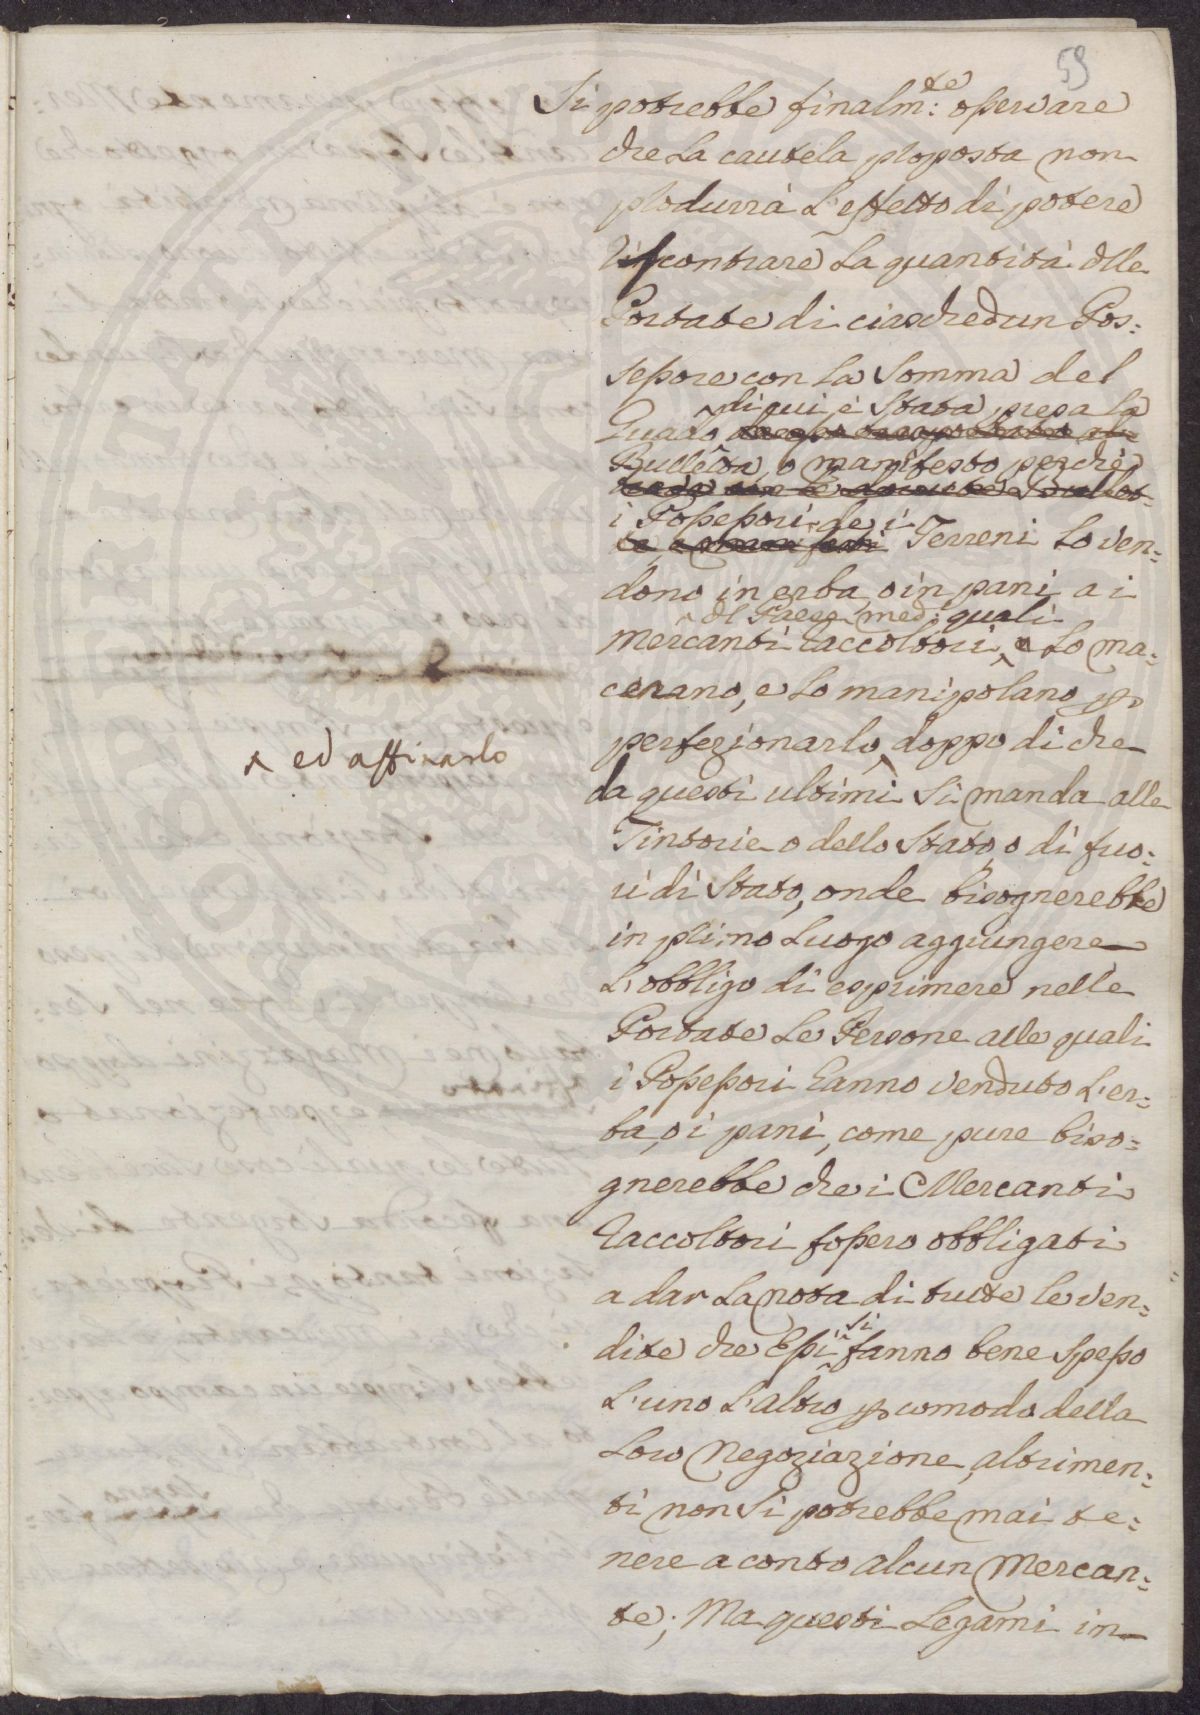 59
Si potrebbe finalm:te osservare
che La cautela proposta non
produrrà L'effetto di potere
riscontrare La quantità dlle
Portate di ciaschedun Pos:
sessore con La Somma del
Guado, di cui è Stata presa la
Bulletta, o manifesto perchè
i Possessori dei Terreni Lo ven:
dono in erba, o in pani a i
mercanti raccoltori del Paese med: quali Lo ma:
cerano, e Lo manipolano p
perfezionarlo, doppo di che
^ ed affinarlo
da questi ultimi Si manda alle
Tintorie o dello Stato, o di fuo:
ri di Stato, onde bisognerebbe
in primo Luogo aggiungere
L'obbligo di esprimere nelle
Portate Le Persone alle quali
i Possessori hanno venduto L'er:
ba, o i pani, come pure biso:
gnerebbe che i Mercanti
raccoltori fossero obbligati
a dar La nota di tutte le ven:
dite che Essi si fanno bene Spesso
L'uno L'altro p comodo della
Loro Negoziazione, altrimen:
ti non Si potrebbe mai te:
nere a conto alcun Mercan:
te; Ma questi Legami in